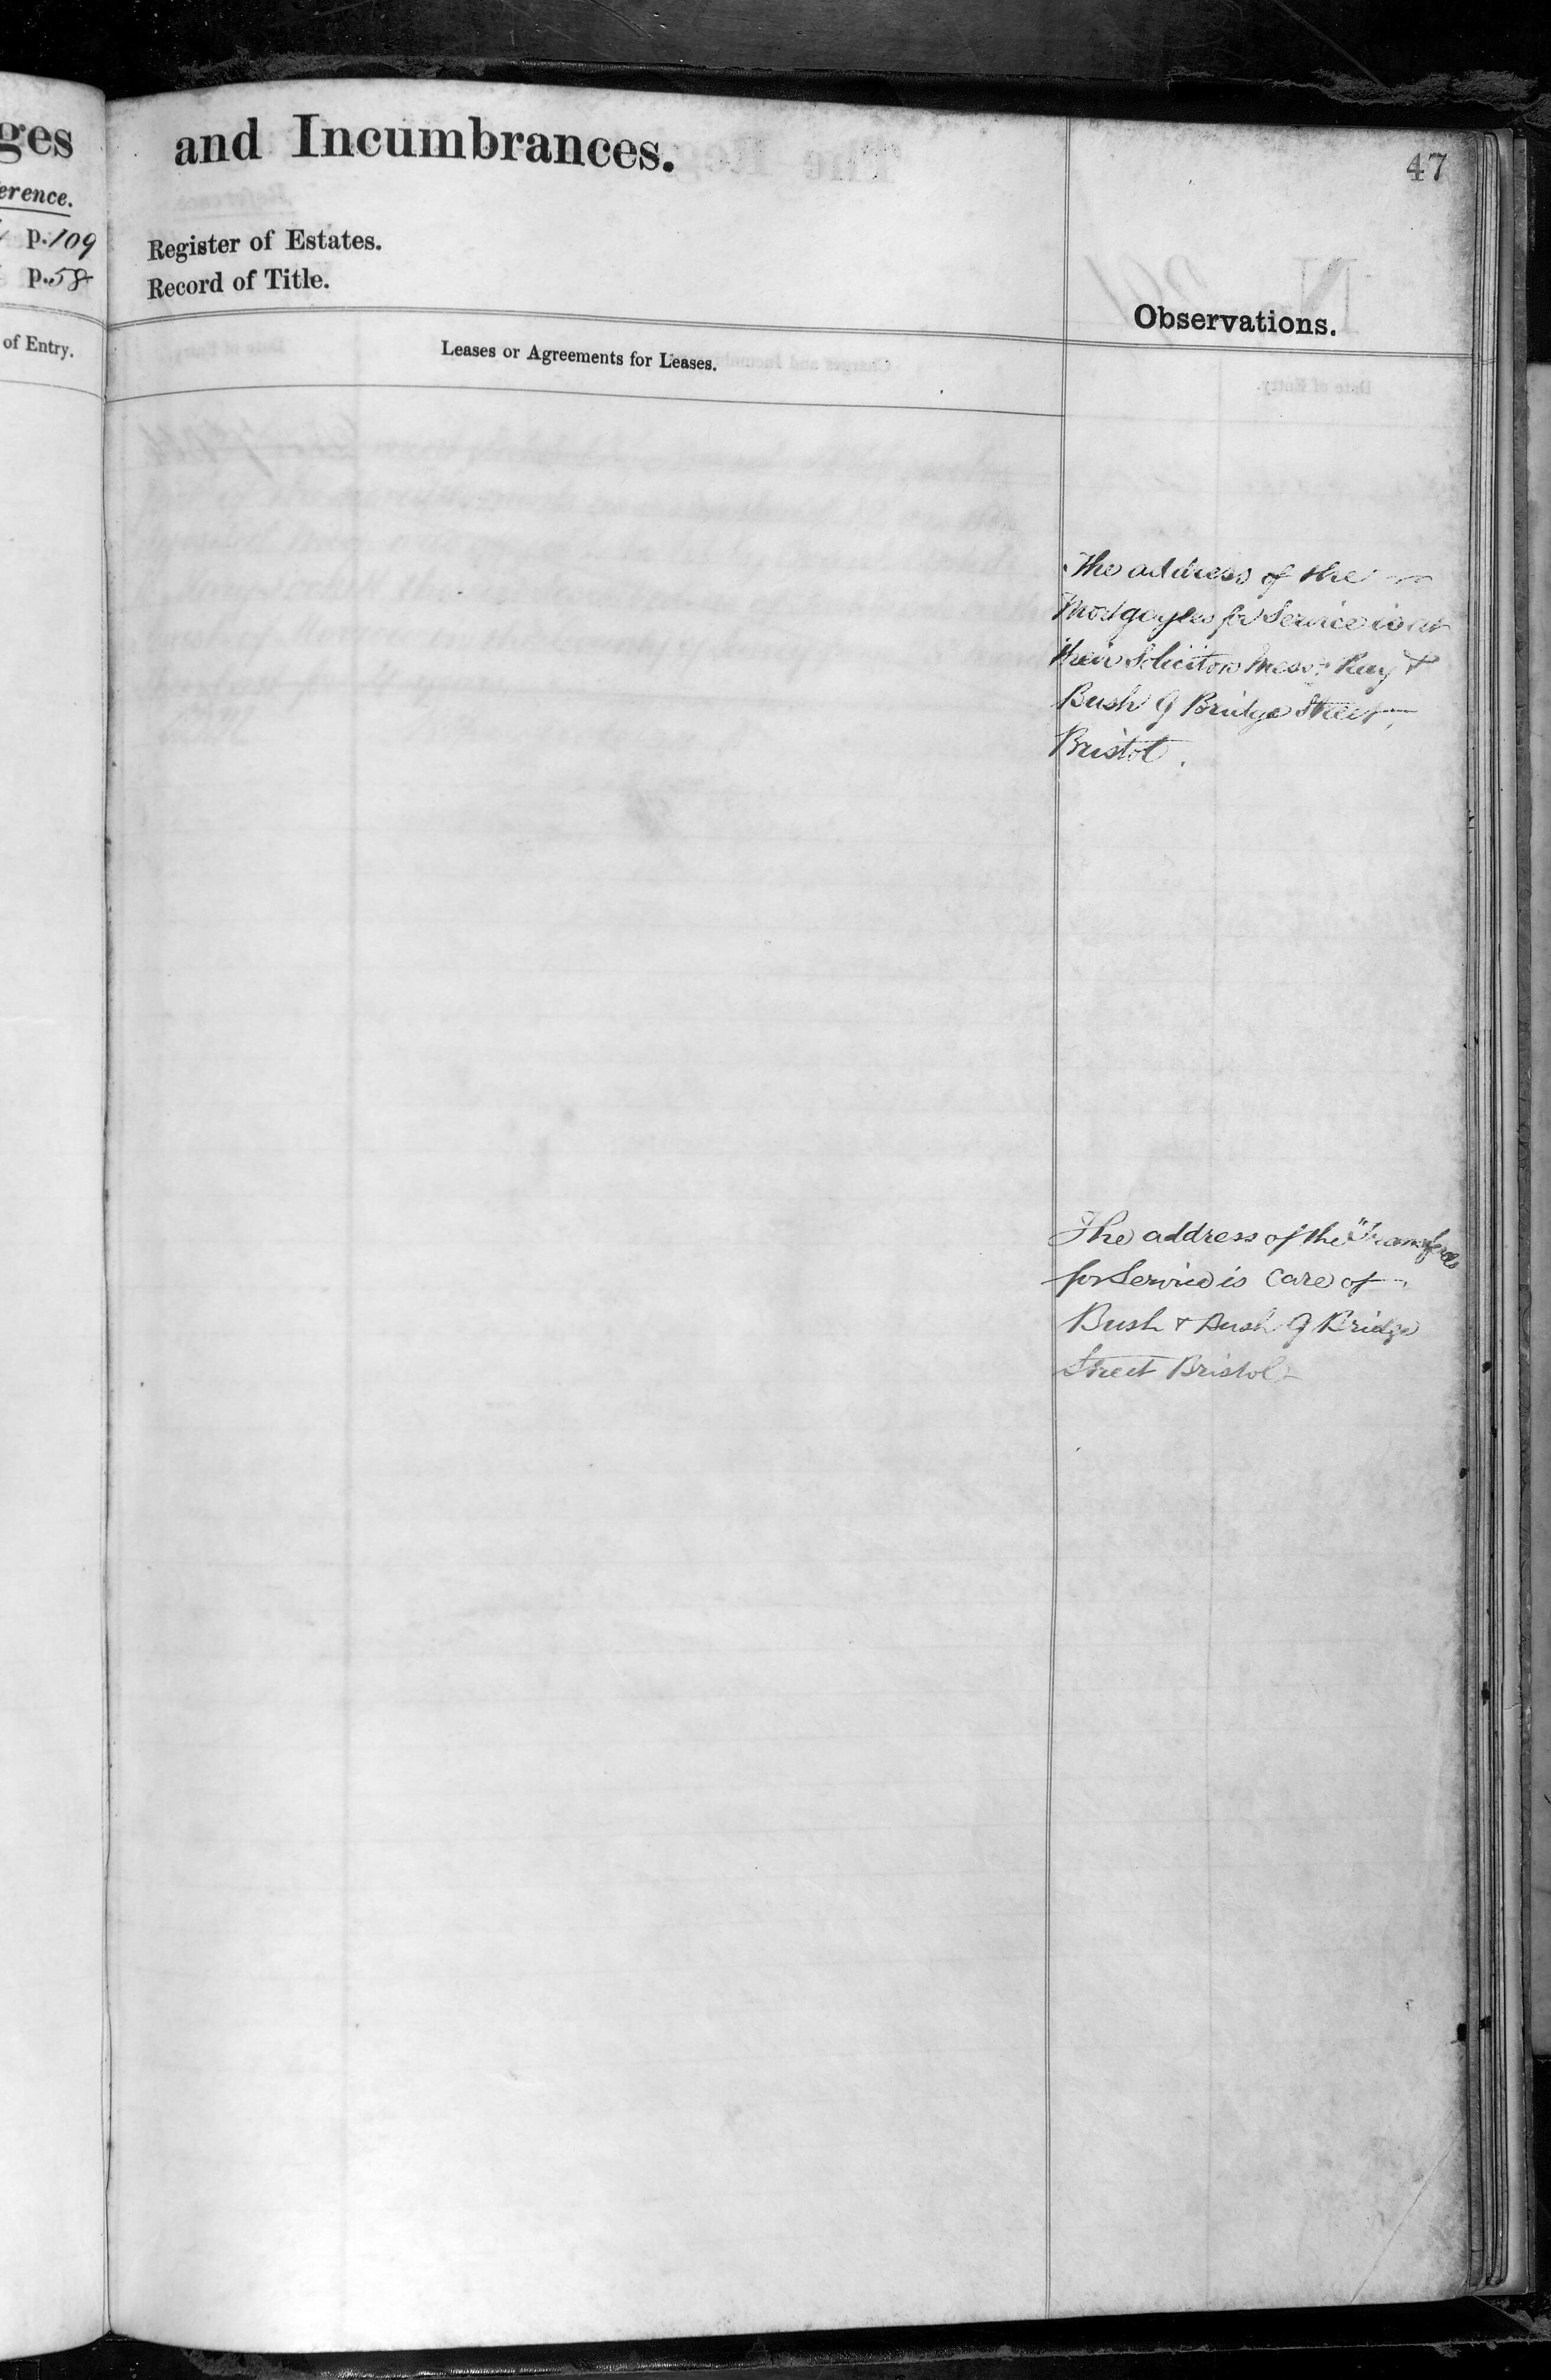 ges
erence.
p. 109
p. 58
of Entry.
and Incumbrances.
47
Register of Estates.
Record of Title.
Observations.
Leases or Agreements for Leases.
The address of the
Mortgagees for Service is at
their Solicitors Messrs Ray &
Bush 9 Bridge Street,
Bristol.
The address of the Transferees
for Service is care of
Bush & Bush 9 Bridge
Street Bristol